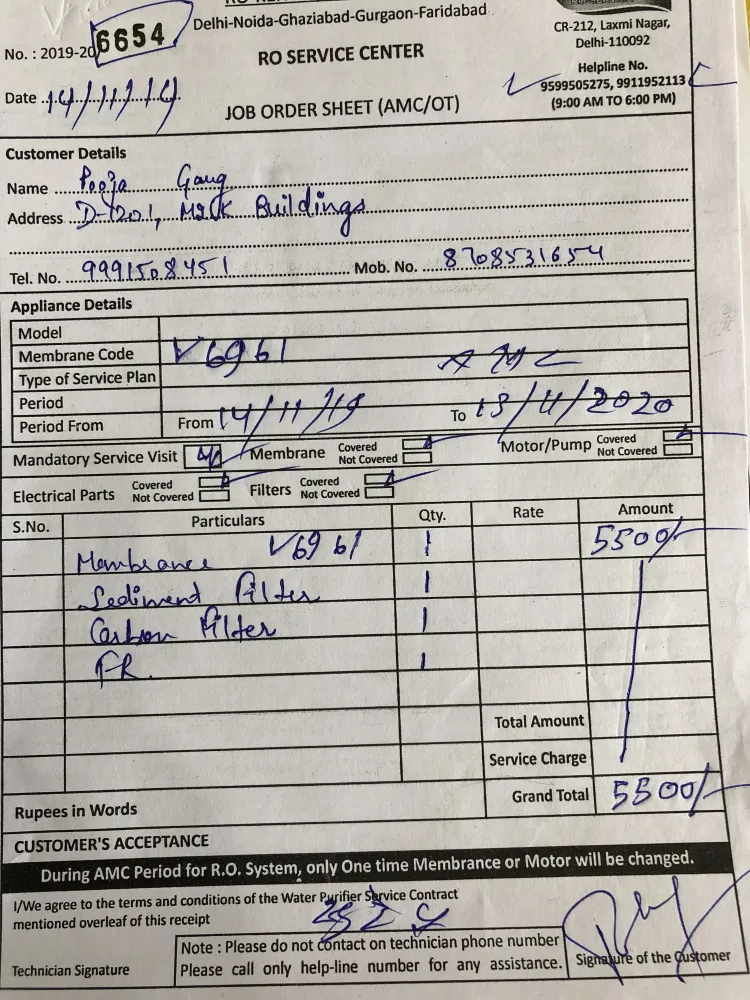 Delhi-Noida-Ghaziabad-Gurgaon-Faridabad
CR-212, Laxmi Nagar,
Delhi-110092
No. : 2019-20 6654
RO SERVICE CENTER
Helpline No.
9599505275, 9911952113
(9:00 AM TO 6:00 PM)
Date 14/11/19
JOB ORDER SHEET (AMC/OT)
Customer Details
Name Pooja Garg
Address D-1201, Buildings
Tel. No. 9991508451 Mob. No. 8708531654
Appliance Details
Model
Membrane Code V6961
Type of Service Plan AMC
Period
Period From From 14/11/19 To 13/11/2020
Mandatory Service Visit Membrane Covered Not Covered Motor/Pump Covered Not Covered
Electrical Parts Covered Not Covered Filters Covered Not Covered
S.No. Particulars Qty. Rate Amount
Membrance V6961 1 5500/-
Sediment Filter 1
Carbon Filter 1
FR. 1
Total Amount
Service Charge
Grand Total 5500/-
Rupees in Words
CUSTOMER'S ACCEPTANCE
During AMC Period for R.O. System, only One time Membrance or Motor will be changed.
I/We agree to the terms and conditions of the Water Purifier Service Contract
mentioned overleaf of this receipt
Note : Please do not contact on technician phone number
Please call only help-line number for any assistance.
Technician Signature
Signature of the Customer